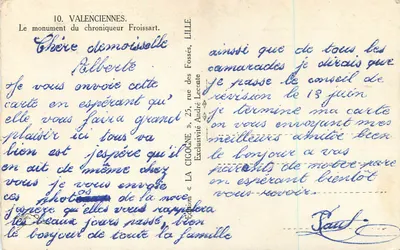 10. VALENCIENNES.
Le monument du chroniqueur Froissart.
Chère demoiselle
Alberte
Je vous envoie cette
carte en espérant qu'
elle vous faira grand
plaisir ici tous va
bien est j'espère qu'il
en ait de même chez
vous je vous envoie
ces photos de la noce
j'espère qu'elles vous rappelera
les beaux jours passé, bien
le bonjour de toute la famille
Editions « LA CIGOGNE », 25, rue des Fossés, LILLE
Exclusivité André Leconte
ainsi que de tous les
camarades je dirais que
je passe le conseil de
révision le 13 juin
je termine ma carte
en vous envoyant mes
meilleurs amitié bien
le bonjour a vos
parents de notre part
en espérant bientôt
vous revoir.
Paul